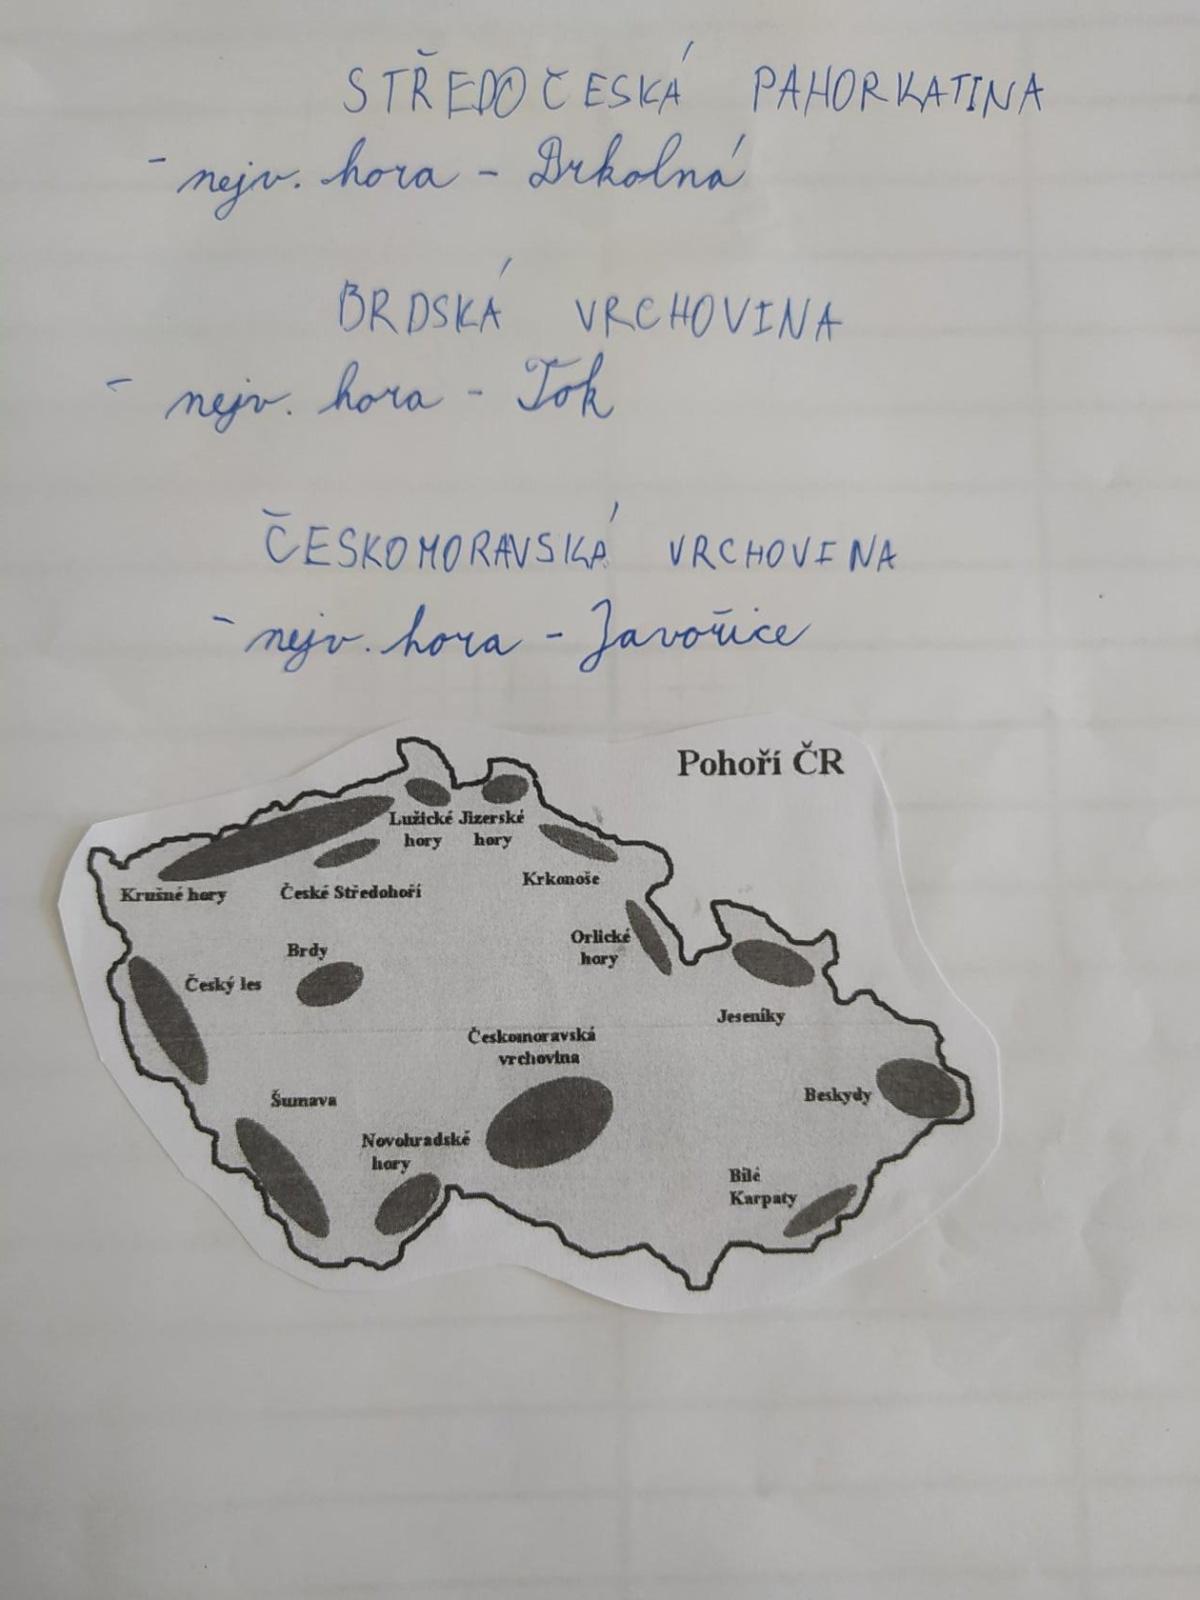 STŘEDOČESKÁ PAHORKATINA
- nejv. hora - Drkolná
BRDSKÁ VRCHOVINA
- nejv. hora - Tok
ČESKOMORAVSKÁ VRCHOVINA
- nejv. hora - Javořice
Pohoří ČR
Lužické hory
Jizerské hory
Krušné hory
České Středohoří
Krkonoše
Orlické
hory
Brdy
Český les
Jeseníky
Českomoravská
vrchovina
Šumava
Beskydy
Novohradské
hory
Bílé
Karpaty